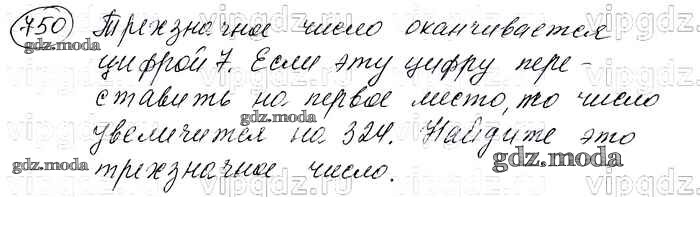 750 Трехзначное число оканчивается
цифрой 7. Если эту цифру пере-
ставить на первое место, то число
увеличится на 324. Найдите это
трехзначное число.
gdz.moda
gdz.moda
gdz.moda
gdz.moda
gdz.moda
vipgdz.ru
vipgdz.ru
vipgdz.ru